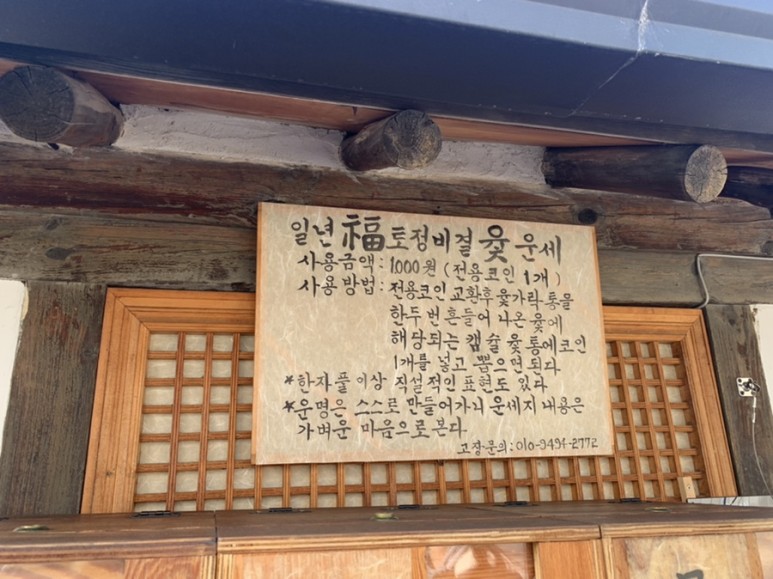 일년 福 토정비결 윷 운세
사용금액 : 1000원 (전용코인 1개)
사용 방법 : 전용코인 교환후 윷가락 통을
한두 번 흔들어 나온 윷에
해당되는 캡슐 윷 통에 코인
1개를 넣고 뽑으면 된다
*한자 풀이상 직설적인 표현도 있다
*운명은 스스로 만들어가니 운세지 내용은
가벼운 마음으로 본다
고장·문의 : 010-9494-2772